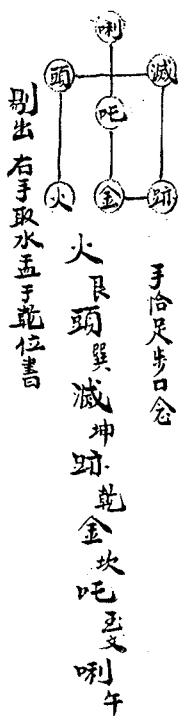 唎
頭 滅
吒
火 金 跡
手恰足步口念
火艮頭巽滅坤跡乾金坎吒玉文唎午
剔出右手取水盂于乾位書